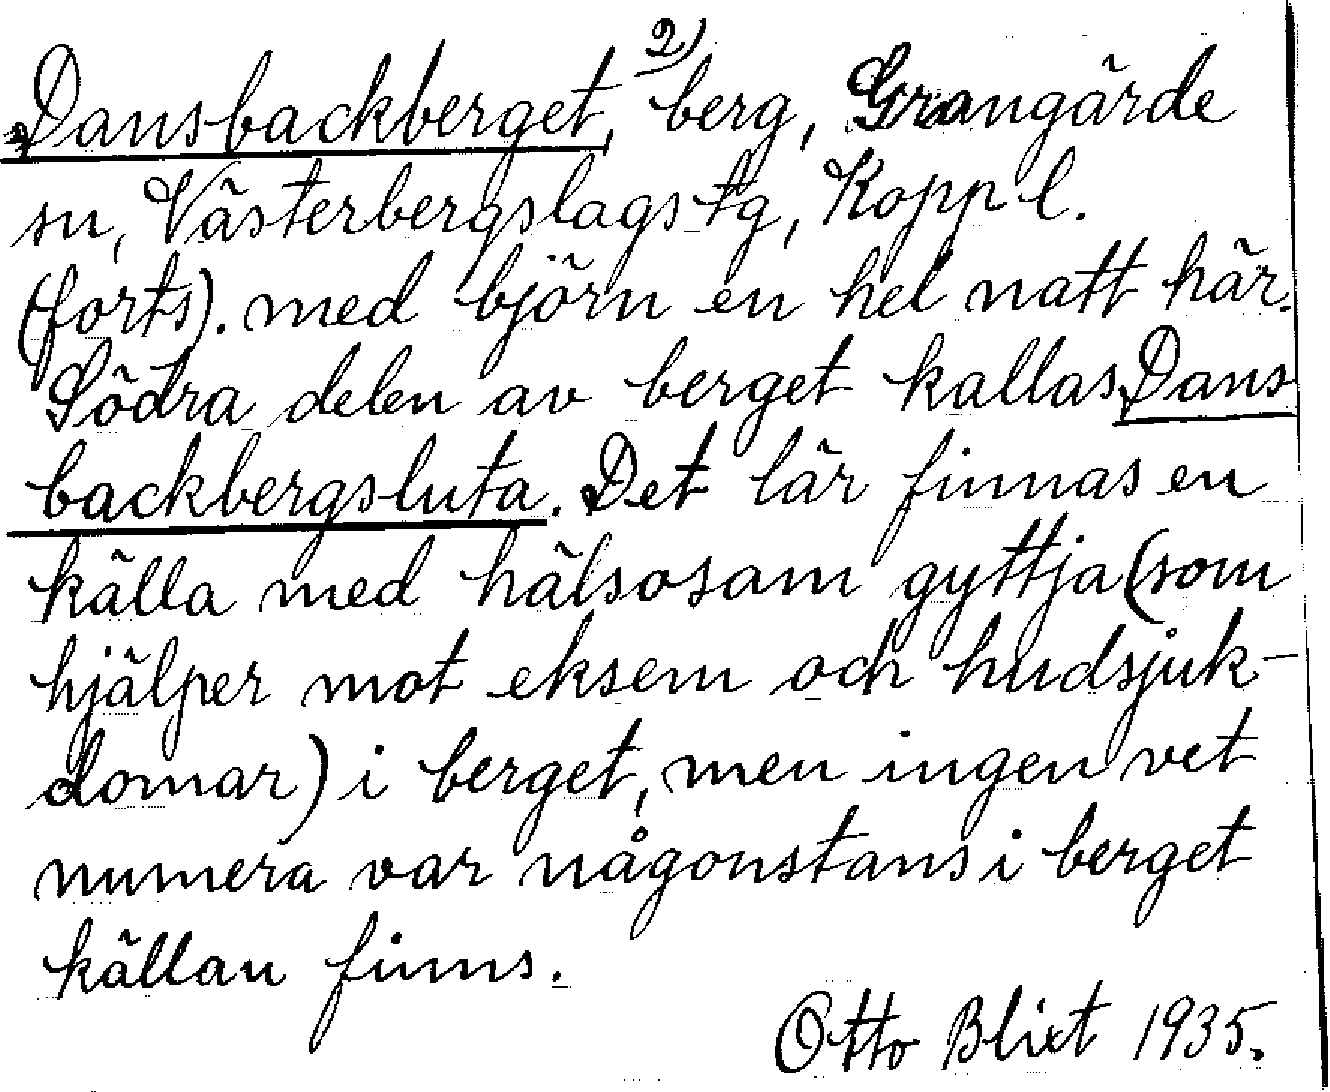 Dansbackberget, 2) berg, Grangärde
sn, Västerbergslags tg, Kopp l.
(forts). med björn en hel natt här.
Södra delen av berget kallas Dans
backbergsluta. Det lär finnas en
källa med hälsosam gyttja (som
hjälper mot eksem och hudsjuk-
domar) i berget, men ingen vet
numera var någonstans i berget
källan finns.
Otto Blixt 1935.